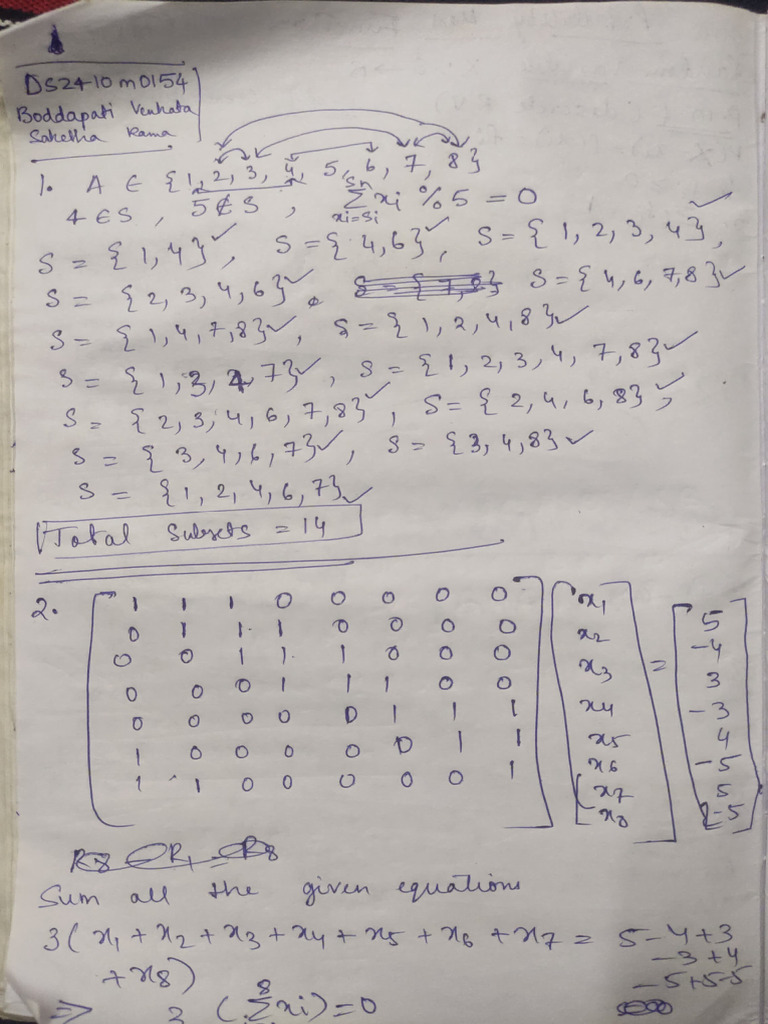 DS24-10 m0154
Boddapati Venkata
Saketha Rama
1. A ∈ {1, 2, 3, 4, 5, 6, 7, 8}
4 ∈ S , 5 ∉ S , Sn Σ xi=Si xi % 5 = 0
S = {1, 4} ✓, S = {4, 6} ✓, S = {1, 2, 3, 4} ✓,
S = {2, 3, 4, 6} ✓, S = {4, 6, 7, 8} ✓
S = {1, 4, 7, 8} ✓, S = {1, 2, 4, 8} ✓
S = {1, 3, 4, 7} ✓, S = {1, 2, 3, 4, 7, 8} ✓
S = {2, 3, 4, 6, 7, 8} ✓, S = {2, 4, 6, 8} ✓,
S = {3, 4, 6, 7} ✓, S = {3, 4, 8} ✓
S = {1, 2, 4, 6, 7} ✓
Total Subsets = 14
2. 1 1 1 0 0 0 0 0 x1 5
0 1 1 1 0 0 0 0 x2 -4
0 0 1 1 1 0 0 0 x3 = 3
0 0 0 1 1 1 0 0 x4 -3
0 0 0 0 0 1 1 1 x5 4
1 0 0 0 0 0 1 1 x6 -5
1 1 0 0 0 0 0 1 x7 5
x8 -5
Sum all the given equations
3(x1 + x2 + x3 + x4 + x5 + x6 + x7 = 5-4+3
+ x8) -3+4
-5+5-5
⇒ 3 (8 Σ xi) = 0